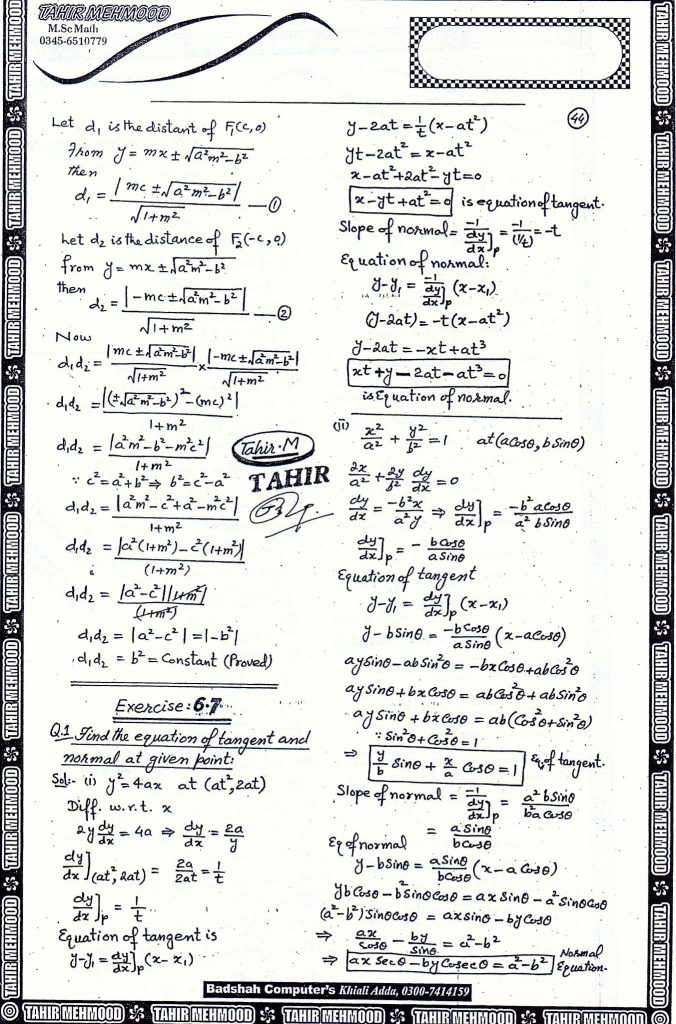 TAHIR MEHMOOD
M.Sc Math
0345-6510779
44
Let d₁ is the distant of F₁(c, 0)
From y = mx ± √(a²m²-b²)
then
d₁ = |mc ± √(a²m²-b²)| / √(1+m²) — ①
Let d₂ is the distance of F₂(-c, 0)
from y = mx ± √(a²m²-b²)
then
d₂ = |-mc ± √(a²m²-b²)| / √(1+m²) — ②
Now
d₁d₂ = |mc ± √(a²m²-b²)| / √(1+m²) × |-mc ± √(a²m²-b²)| / √(1+m²)
d₁d₂ = |(±√(a²m²-b²))² - (mc)²| / 1+m²
d₁d₂ = |a²m²-b²-m²c²| / 1+m²
∵ c² = a²+b² ⇒ b² = c²-a²
d₁d₂ = |a²m²-c²+a²-m²c²| / 1+m²
d₁d₂ = |a²(1+m²)-c²(1+m²)| / (1+m²)
d₁d₂ = |a²-c²||1+m²| / (1+m²)
d₁d₂ = |a²-c²| = |-b²|
d₁d₂ = b² = Constant (Proved)
Tahir.M
TAHIR
Exercise: 6.7
Q.1 Find the equation of tangent and
normal at given point:
Sol:- (i) y² = 4ax at (at², 2at)
Diff. w.r.t. x
2y dy/dx = 4a ⇒ dy/dx = 2a/y
dy/dx](at², 2at) = 2a/2at = 1/t
dy/dx]p = 1/t
Equation of tangent is
y-y₁ = dy/dx]p (x-x₁)
y-2at = 1/t (x-at²)
yt-2at² = x-at²
x-at²+2at²-yt=0
x-yt+at²=0 is equation of tangent.
Slope of normal = -1/(dy/dx]p) = -1/(1/t) = -t
Equation of normal:
y-y₁ = -1/(dy/dx]p) (x-x₁)
(y-2at) = -t(x-at²)
y-2at = -xt+at³
xt+y-2at-at³=0
is Equation of normal.
(ii) x²/a² + y²/b² = 1 at (aCosθ, bSinθ)
2x/a² + 2y/b² dy/dx = 0
dy/dx = -b²x/a²y ⇒ dy/dx]p = -b²aCosθ/a²bSinθ
dy/dx]p = - bCosθ/aSinθ
Equation of tangent
y-y₁ = dy/dx]p (x-x₁)
y-bSinθ = -bCosθ/aSinθ (x-aCosθ)
aySinθ-abSin²θ = -bxCosθ+abCos²θ
aySinθ+bxCosθ = abCos²θ+abSin²θ
aySinθ+bxCosθ = ab(Cos²θ+Sin²θ)
∵ Sin²θ+Cos²θ=1
⇒ y/b Sinθ + x/a Cosθ = 1 Eq. of tangent.
Slope of normal = -1/(dy/dx]p) = a²bSinθ/b²aCosθ
= aSinθ/bCosθ
Eq of normal
y-bSinθ = aSinθ/bCosθ (x-aCosθ)
ybCosθ-b²SinθCosθ = axSinθ-a²SinθCosθ
(a²-b²)SinθCosθ = axSinθ-byCosθ
⇒ ax/Cosθ - by/Sinθ = a²-b²
⇒ axSecθ-byCosecθ = a²-b² Normal Equation.
Badshah Computer's Khiali Adda, 0300-7414159
TAHIR MEHMOOD TAHIR MEHMOOD TAHIR MEHMOOD TAHIR MEHMOOD TAHIR MEHMOOD